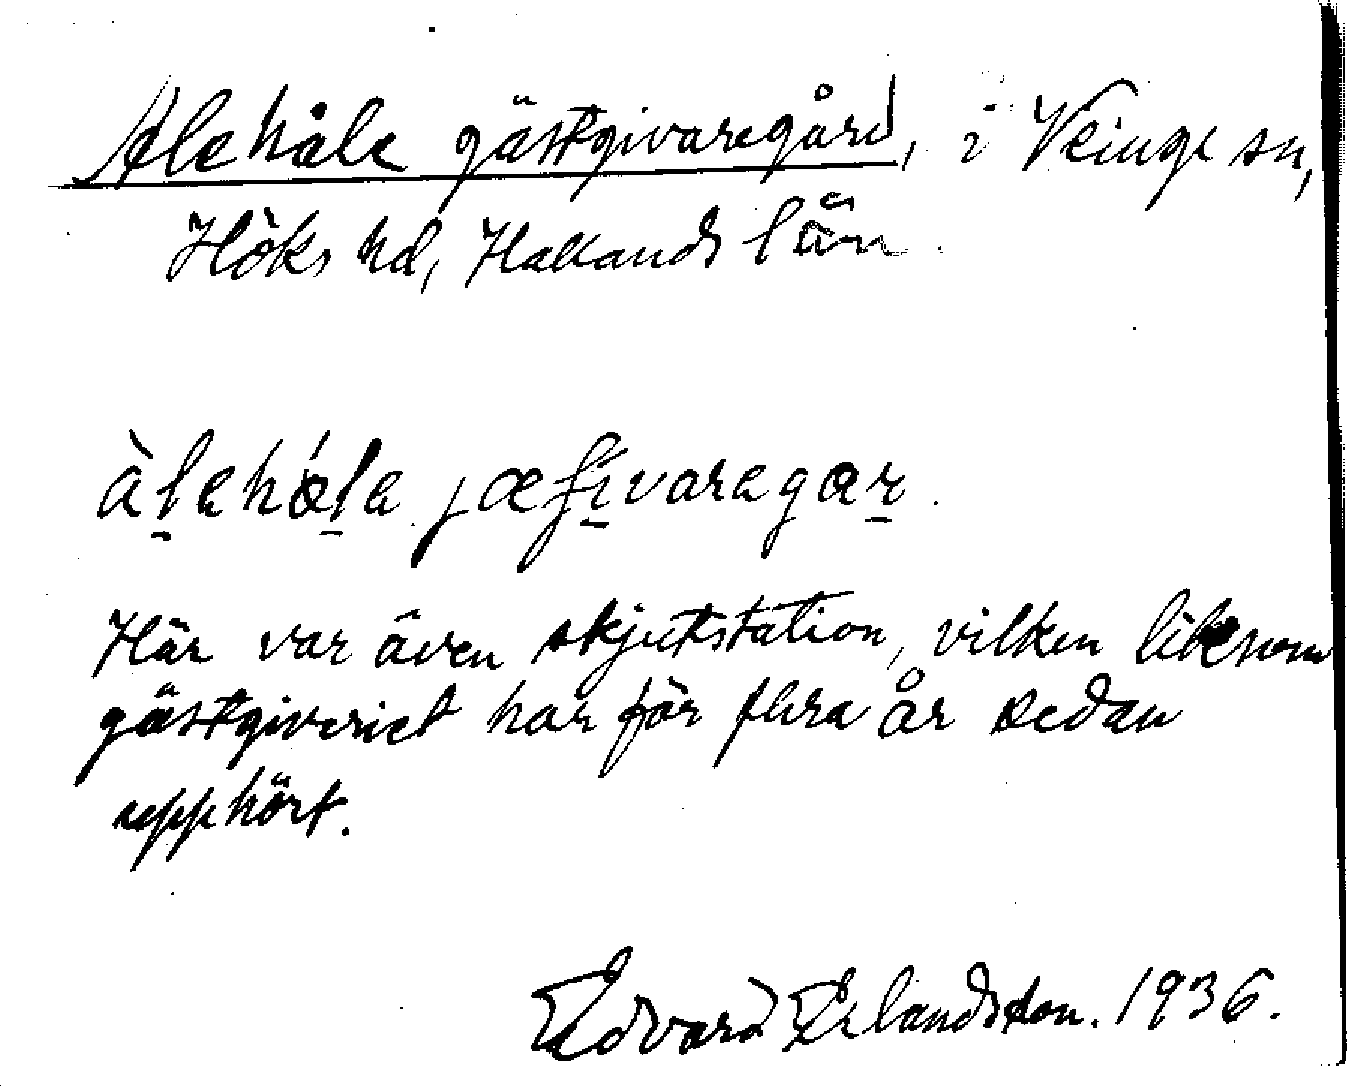 Alehåle gästgivaregård, i Veinge sn,
Höks hd, Hallands län.
àlehǻla jæʃivaregar.
Här var även skjutsstation, vilken liksom
gästgiveriet har för flera år sedan
upphört.
Edvard Erlandsson. 1936.